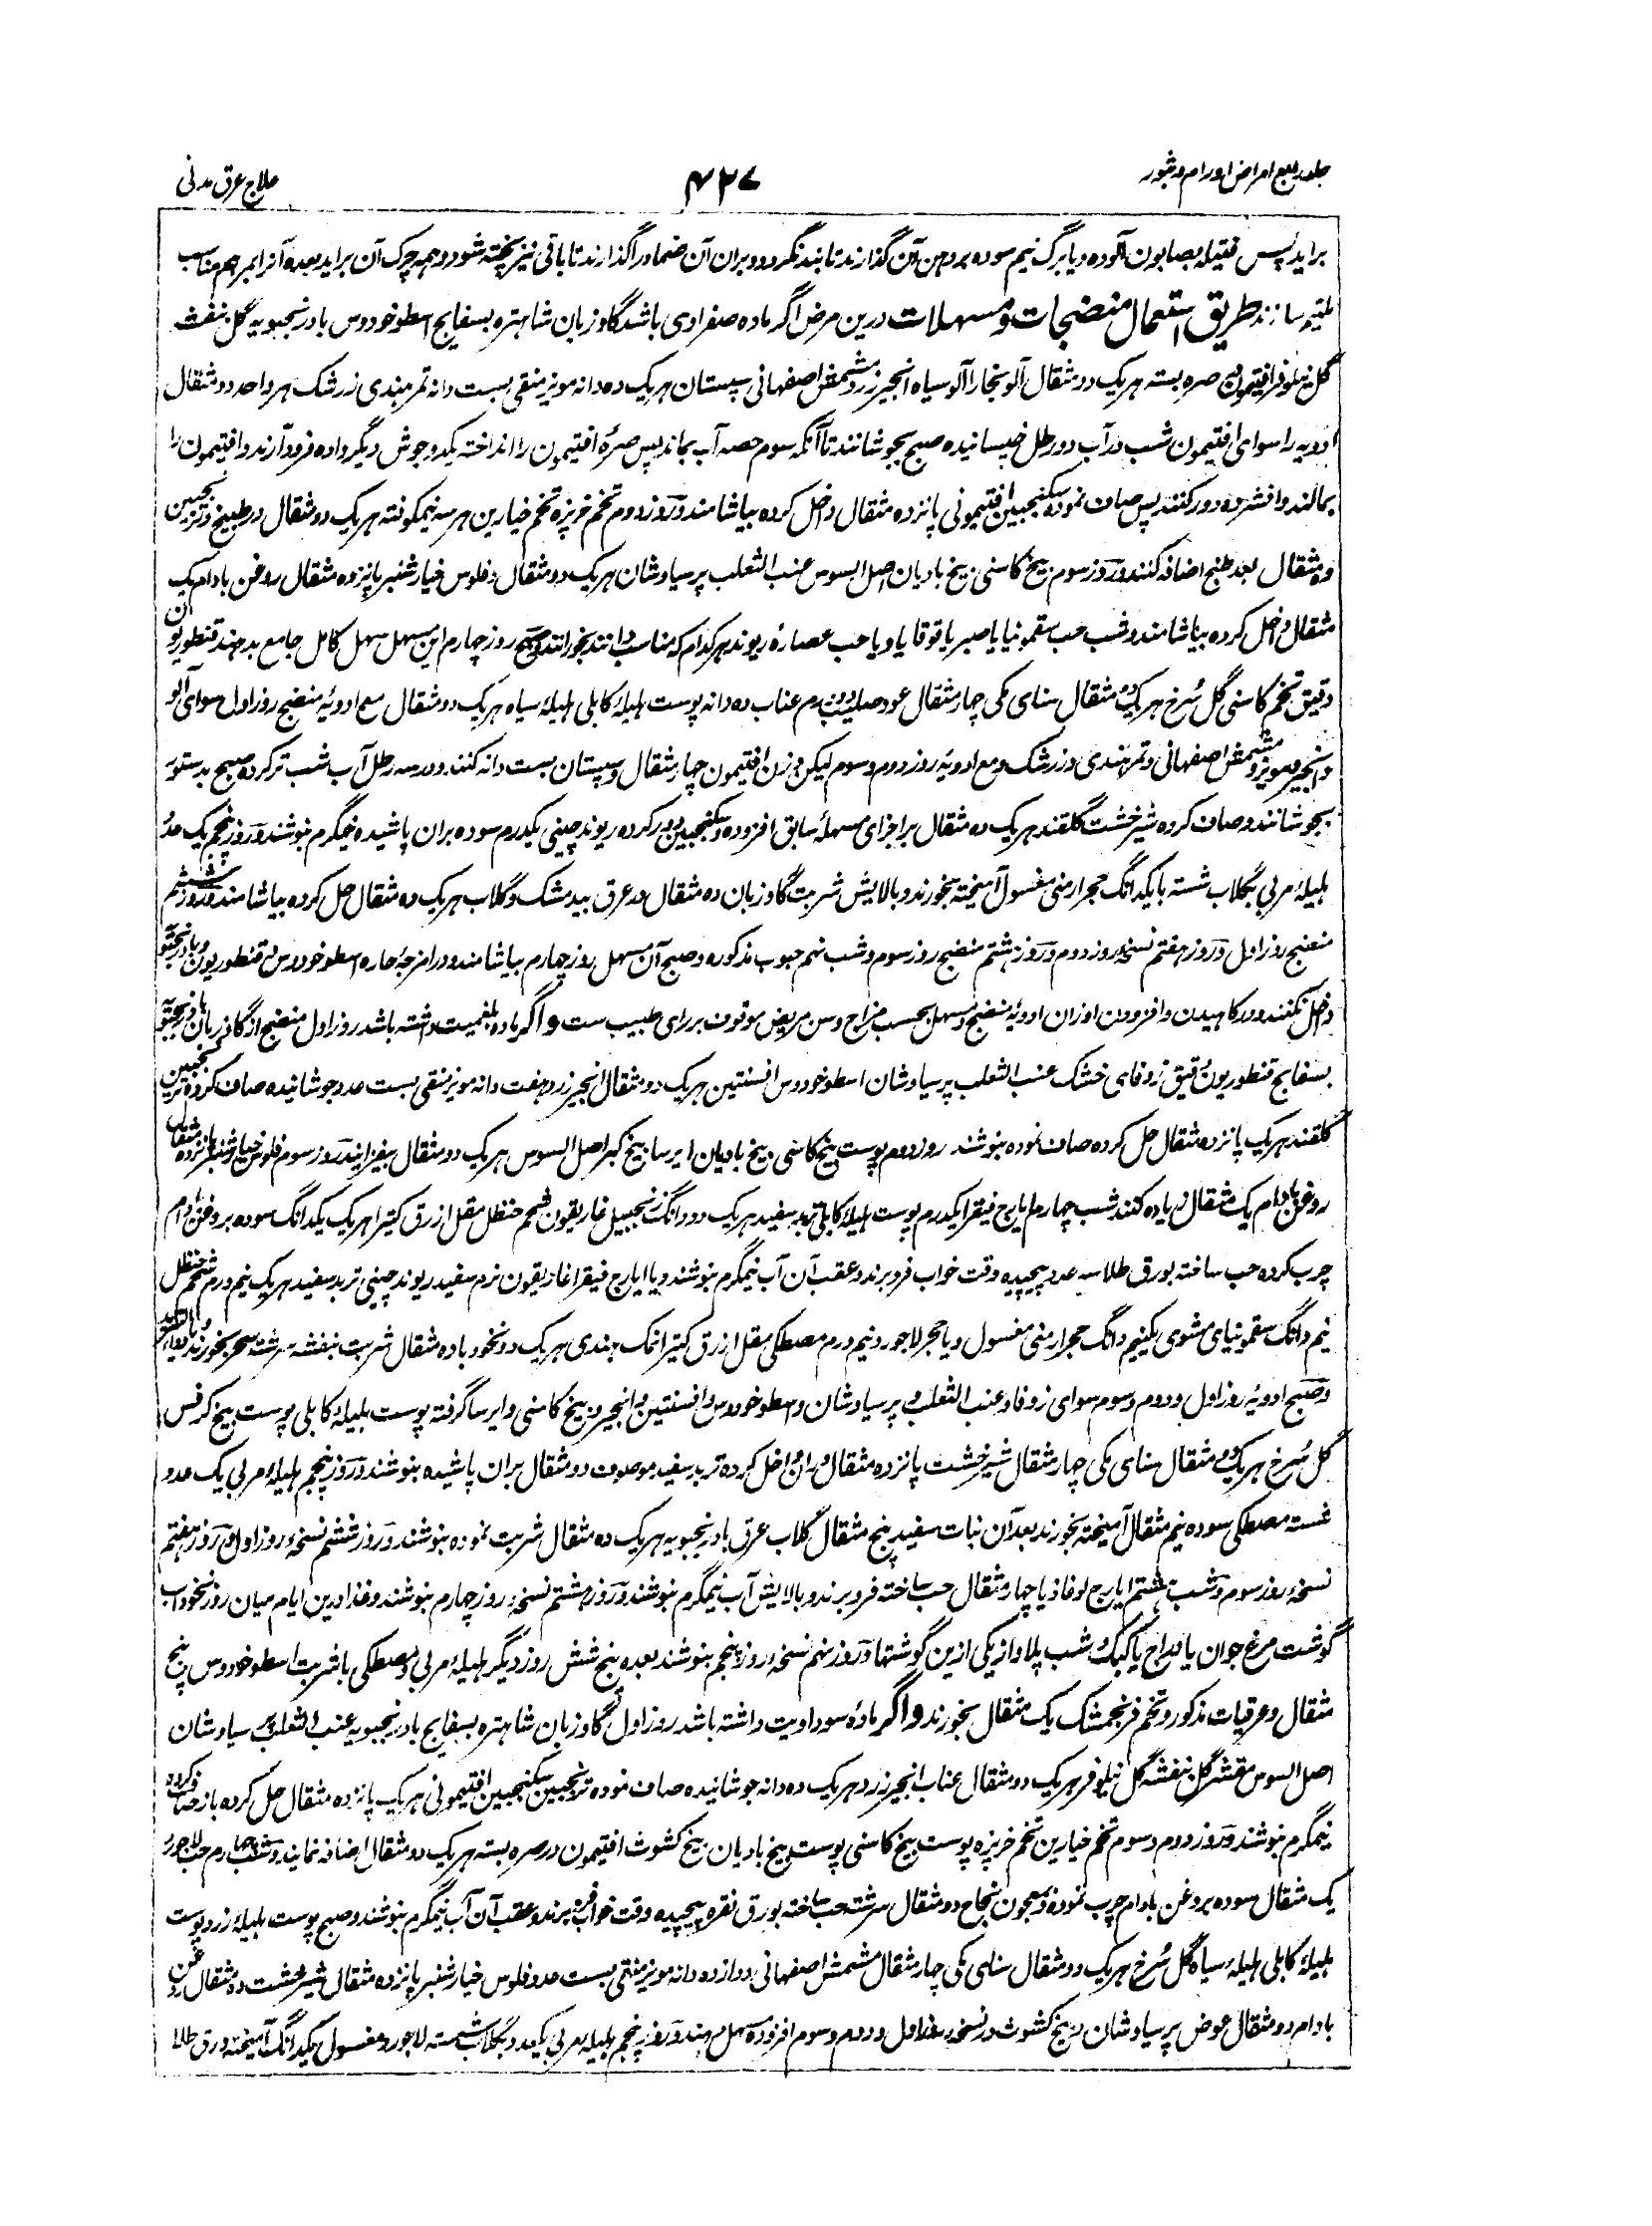 جلد رابع امراض اورام و بثور
۴۲۷
علاج عرق مدنی
براید پس فتیله بصابون آلوده و یا برگ نیم سوده بر دهن آن گذارند تا بند نگردد و بران آن ضماد را گذارند تا باقی نیز پخته شود و همه چرک آن براید بعده آنرا بمرهم مناسب
ملتیم سازند طریق استعمال منضجات و مسهلات درین مرض اگر ماده صفراوی باشد گاوزبان شاهتره بسفایج اسطوخودوس بادرنجبویه گل بنفشه
گل نیلوفر افتیمون در صره بسته هر یک دو مثقال آلو بخارا آلو سیاه انجیر زرد مشمش اصفهانی سپستان هر یک ده دانه مویز منقی بست دانه تمر هندی زرشک هر واحد دو مثقال
ادویه را سوای افتیمون شب در آب دو رطل خیسانیده صبح بجوشانند تا آنکه سوم حصه آب بماند پس صرهٔ افتیمون را انداخته یکدو جوش دیگر داده فرود آرند و افتیمون را
بمالند و افشرده دور کنند پس صاف نموده سکنجبین افتیمونی پانزده مثقال داخل کرده بیاشامند و روز دوم تخم خرپزه تخم خیارین هر سه نیمکوفته هر یک دو مثقال در طبیخ و ترنجبین
ده مثقال بعد طبخ اضافه کنند و روز سوم بیخ کاسنی بیخ بادیان اصل السوس عنب الثعلب پرسیاوشان هر یک دو مثقال و فلوس خیارشنبر پانزده مثقال روغن بادام یک
مثقال داخل کرده بیاشامند و شب حب سقمونیا یا صبر یا قوقایا و یا حب عصارهٔ ریوند هر کدام که مناسب دانند بخورانند و صبح روز چهارم این مسهل مسهل کامل جامع بدهند قنطوریون
دقیق تخم کاسنی گل سُرخ هر یک دو مثقال سنای مکی چهار مثقال عود صلیب درم عناب ده دانه پوست هلیلهٔ کابلی هلیلهٔ سیاه هر یک دو مثقال مع ادویهٔ منضج روز اول سوای آلو
و انجیر و مویز و مشمش اصفهانی و تمر هندی و زرشک و مع ادویهٔ روز دوم و سوم لیکن وزن افتیمون چهار مثقال و سپستان بست دانه کنند و در سه رطل آب شب تر کرده صبح بدستور
بجوشانند و صاف کرده شیرخشت گلقند هر یک ده مثقال بر اجزای مسهلهٔ سابق افزوده و سکنجبین دور کرده ریوند چینی یکدرم سوده بران پاشیده نیمگرم بنوشند و روز پنجم یک عدد
هلیلهٔ مربی بگلاب شسته با یکدانگ حجر ارمنی مغسول آمیخته بخورند و بالایش شربت گاوزبان ده مثقال در عرق بیدمشک و گلاب هر یک ده مثقال حل کرده بیاشامند و روز ششم
منضج روز اول و روز هفتم نسخهٔ روز دوم و روز هشتم منضج روز سوم و شب نهم حبوب مذکوره و صبح آن مسهل روز چهارم بیاشامند و در امزجهٔ حاره اسطوخودوس و قنطوریون و بادرنجبویه
داخل نکنند و در کاهیدن و افزودن اوزان ادویهٔ منضج و مسهل بحسب مزاج و سن مریض موقوف بر رای طبیب ست و اگر ماده بلغمیت داشته باشد روز اول منضج از گاوزبان بادرنجبویه
بسفایج قنطوریون دقیق زوفای خشک عنب الثعلب پرسیاوشان اسطوخودوس افسنتین هر یک دو مثقال انجیر زرد هفت دانه مویز منقی بست عدد جوشانیده صاف کرده ترنجبین
گلقند هر یک پانزده مثقال حل کرده صاف نموده بنوشند روز دوم پوست بیخ کاسنی بیخ بادیان ایرسا بیخ کبر اصل السوس هر یک دو مثقال بیفزایند و روز سوم فلوس خیارشنبر پانزده مثقال
روغن بادام یک مثقال زیاده کنند شب چهارم ایارج فیقرا یکدرم پوست هلیلهٔ کابلی تربد سفید هر یک دو دانگ زنجبیل غاریقون شحم حنظل مقل ازرق کتیرا هر یک یکدانگ سوده بروغن بادام
چرب کرده حب ساخته بورق طلا سه عدد پیچیده وقت خواب فرو برند و عقب آن آب نیمگرم بنوشند و یا ایارج فیقرا غاریقون نرم سفید ریوند چینی تربد سفید هر یک نیم درم شحم حنظل
نیم دانگ سقمونیای مشوی یکنیم دانگ حجر ارمنی مغسول و یا حجر لاجورد نیم درم مصطکی مقل ازرق کتیرا نمک هندی هر یک دو نخود با ده مثقال شربت بنفشه سرشته سحر بخورند
و صبح ادویهٔ روز اول و دوم و سوم سوای زوفا و عنب الثعلب و پرسیاوشان و اسطوخودوس و افسنتین و انجیر و بیخ کاسنی و ایرسا گرفته پوست هلیلهٔ کابلی پوست بیخ کرفس
گل سُرخ هر یک دو مثقال سنای مکی چهار مثقال شیرخشت پانزده مثقال دران داخل کرده تربد سفید موصوف دو مثقال بران پاشیده بنوشند و روز پنجم هلیلهٔ مربی یک عدد
شسته مصطکی سوده نیم مثقال آمیخته بخورند بعد آن نبات سفید پنج مثقال گلاب عرق بادرنجبویه هر یک ده مثقال شربت نموده بنوشند و روز ششم نسخهٔ روز اول و روز هفتم
نسخهٔ روز سوم و شب هشتم ایارج لوغاذیا چهار مثقال حب ساخته فرو برند و بالایش آب نیمگرم بنوشند و روز هشتم نسخهٔ روز چهارم بنوشند و غذا درین ایام میان روز نخوداب
گوشت مرغ جوان یا دراج یا کبک و شب پلاو از یکی ازین گوشتها و روز نهم نسخهٔ روز پنجم بنوشند بعده پنج شش روز دیگر هلیلهٔ مربی و مصطکی با شربت اسطوخودوس پنج
مثقال و عرقیات مذکور و تخم فرنجمشک یک مثقال بخورند و اگر مادهٔ سوداویت داشته باشد روز اول گاوزبان شاهتره بسفایج بادرنجبویه عنب الثعلب پرسیاوشان
اصل السوس مقشر گل بنفشه گل نیلوفر هر یک دو مثقال عناب انجیر زرد هر یک ده دانه جوشانیده صاف نموده ترنجبین سکنجبین افتیمونی هر یک پانزده مثقال حل کرده باز صاف کرده
نیمگرم بنوشند و روز دوم و سوم تخم خیارین تخم خرپزه پوست بیخ کاسنی پوست بیخ بادیان بیخ کشوث افتیمون در صره بسته هر یک دو مثقال اضافه نمایند و شب چهارم حب لاجورد
یک مثقال سوده بروغن بادام چرب نموده و بمعجون نجاح دو مثقال سرشته حب ساخته بورق نقره پیچیده وقت خواب فرو برند و عقب آن آب نیمگرم بنوشند و صبح پوست هلیلهٔ زرد پوست
هلیلهٔ کابلی هلیلهٔ سیاه گل سُرخ هر یک دو مثقال سنای مکی چهار مثقال مشمش اصفهانی دوازده دانه مویز منقی بست عدد فلوس خیارشنبر پانزده مثقال شیرخشت ده مثقال روغن
بادام دو مثقال عوض پرسیاوشان و بیخ کشوث در نسخهٔ روز اول و دوم و سوم افزوده مسهل دهند و روز پنجم هلیلهٔ مربی یکعدد بگلاب شسته لاجورد مغسول یکدانگ آمیخته ورق طلا